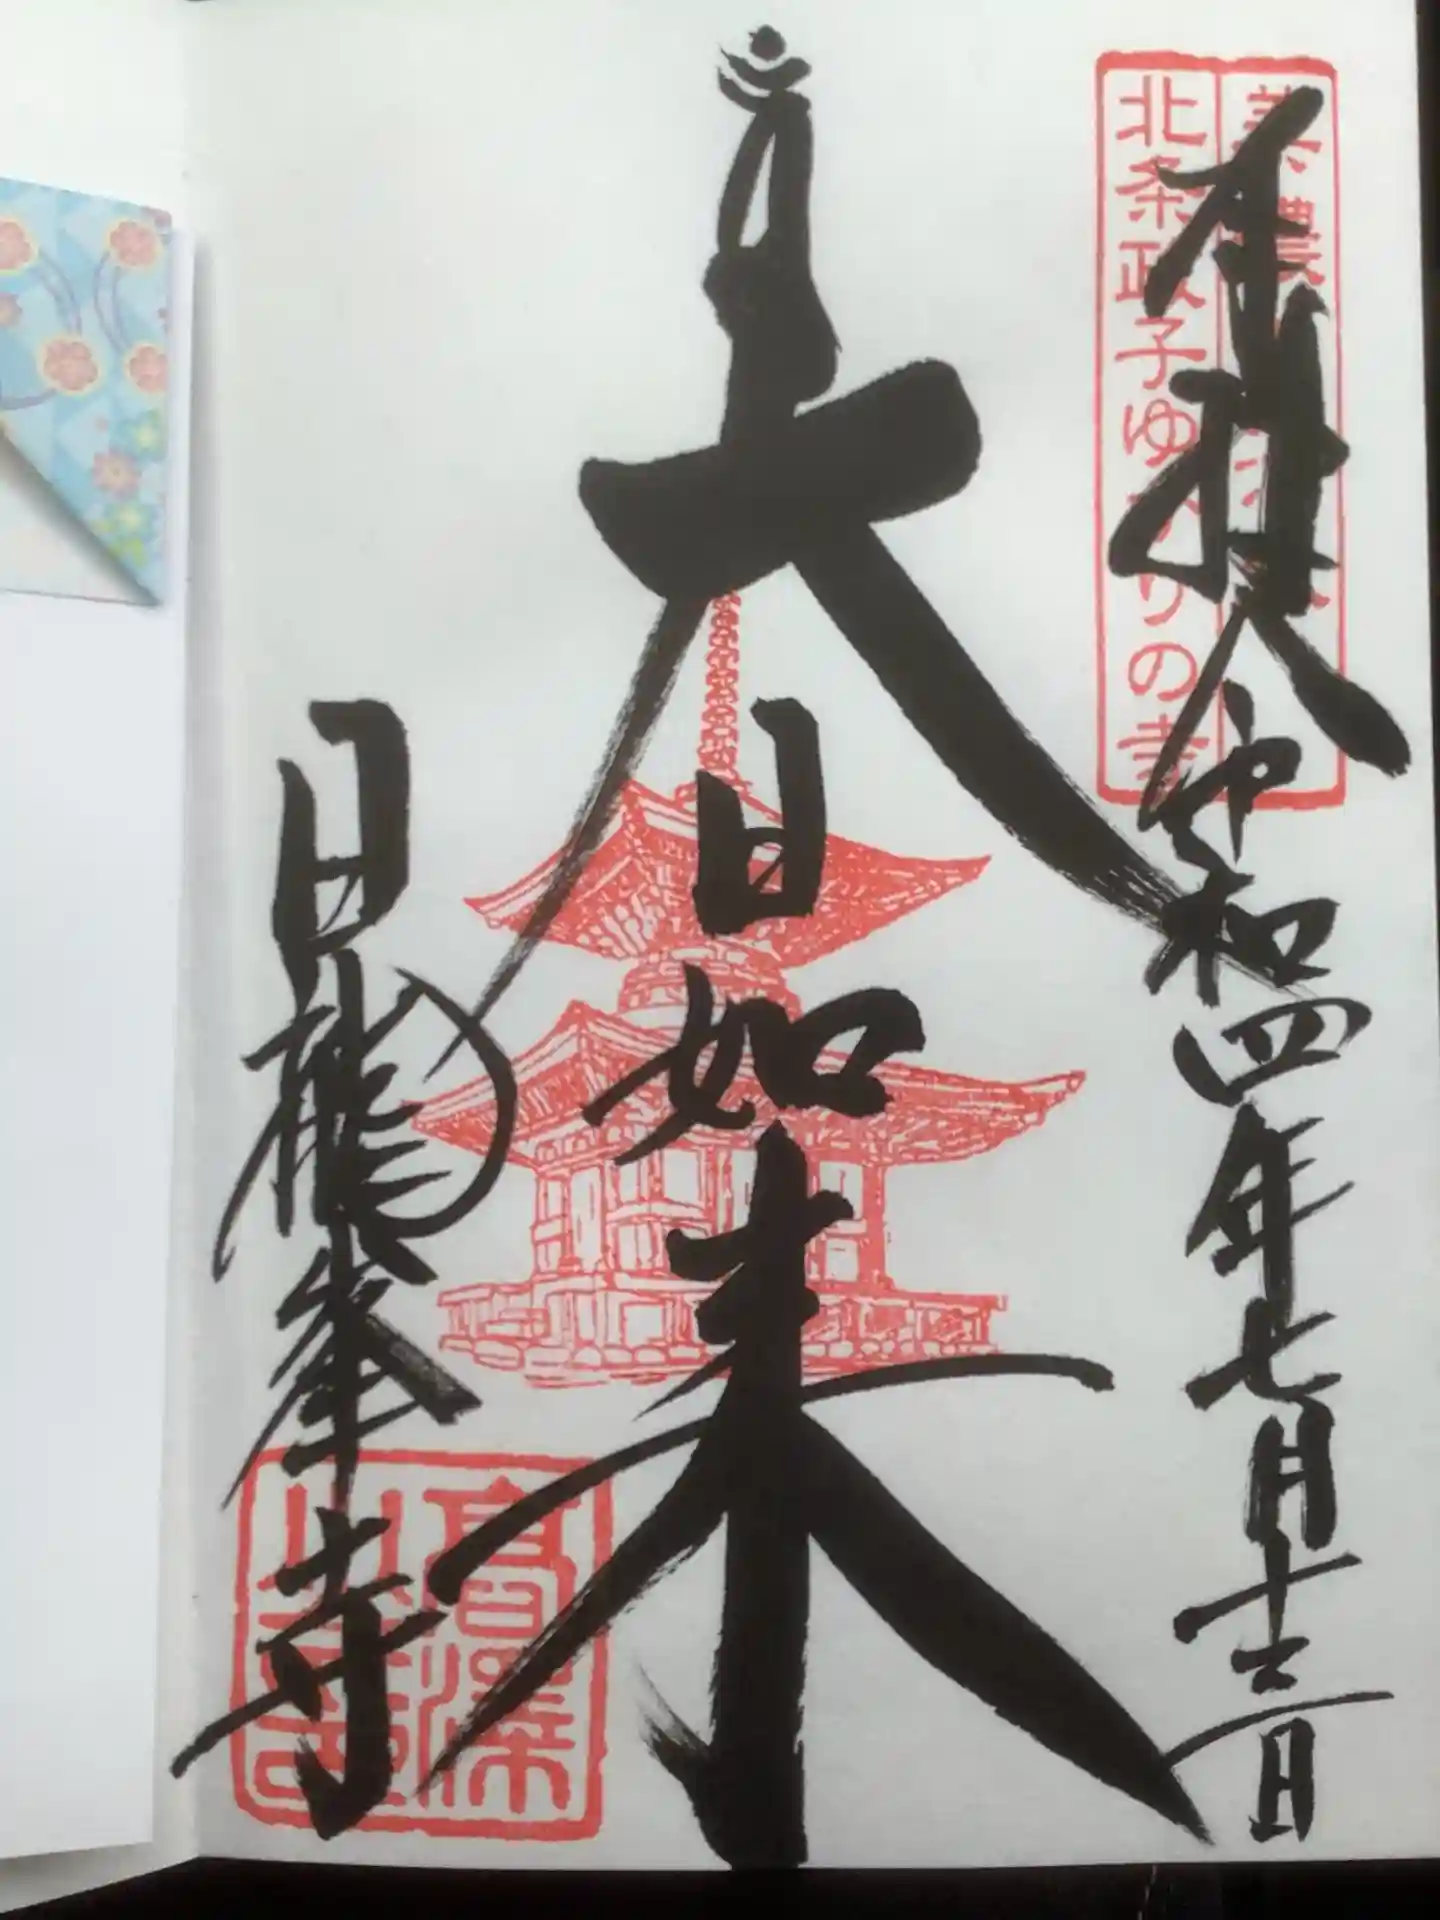 奉拝
令和四年七月十三日
北条政子ゆかりの寺
大日如来
日龍峯寺